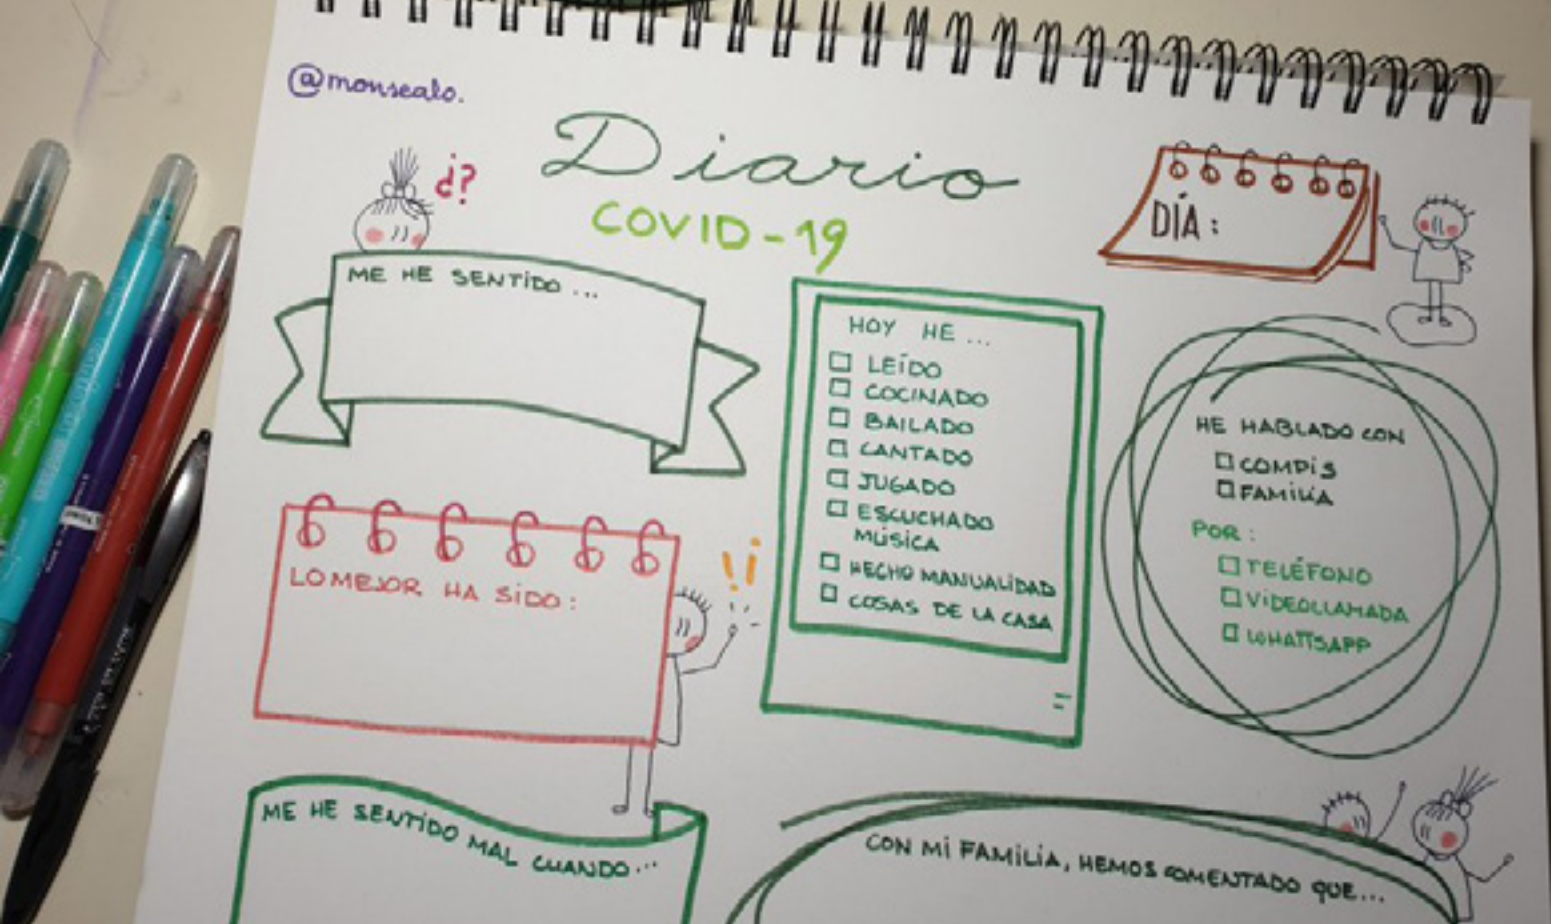 @monsealo.
Diario
COVID-19
¿?
DÍA:
ME HE SENTIDO...
HOY HE...
LEÍDO
COCINADO
BAILADO
CANTADO
JUGADO
ESCUCHADO
MÚSICA
HECHO MANUALIDAD
COSAS DE LA CASA
HE HABLADO CON
COMPIS
FAMILIA
POR:
TELÉFONO
VIDEOLLAMADA
WHATTSAPP
LO MEJOR HA SIDO:
!¡
ME HE SENTIDO MAL CUANDO...
CON MI FAMILIA, HEMOS COMENTADO QUE...